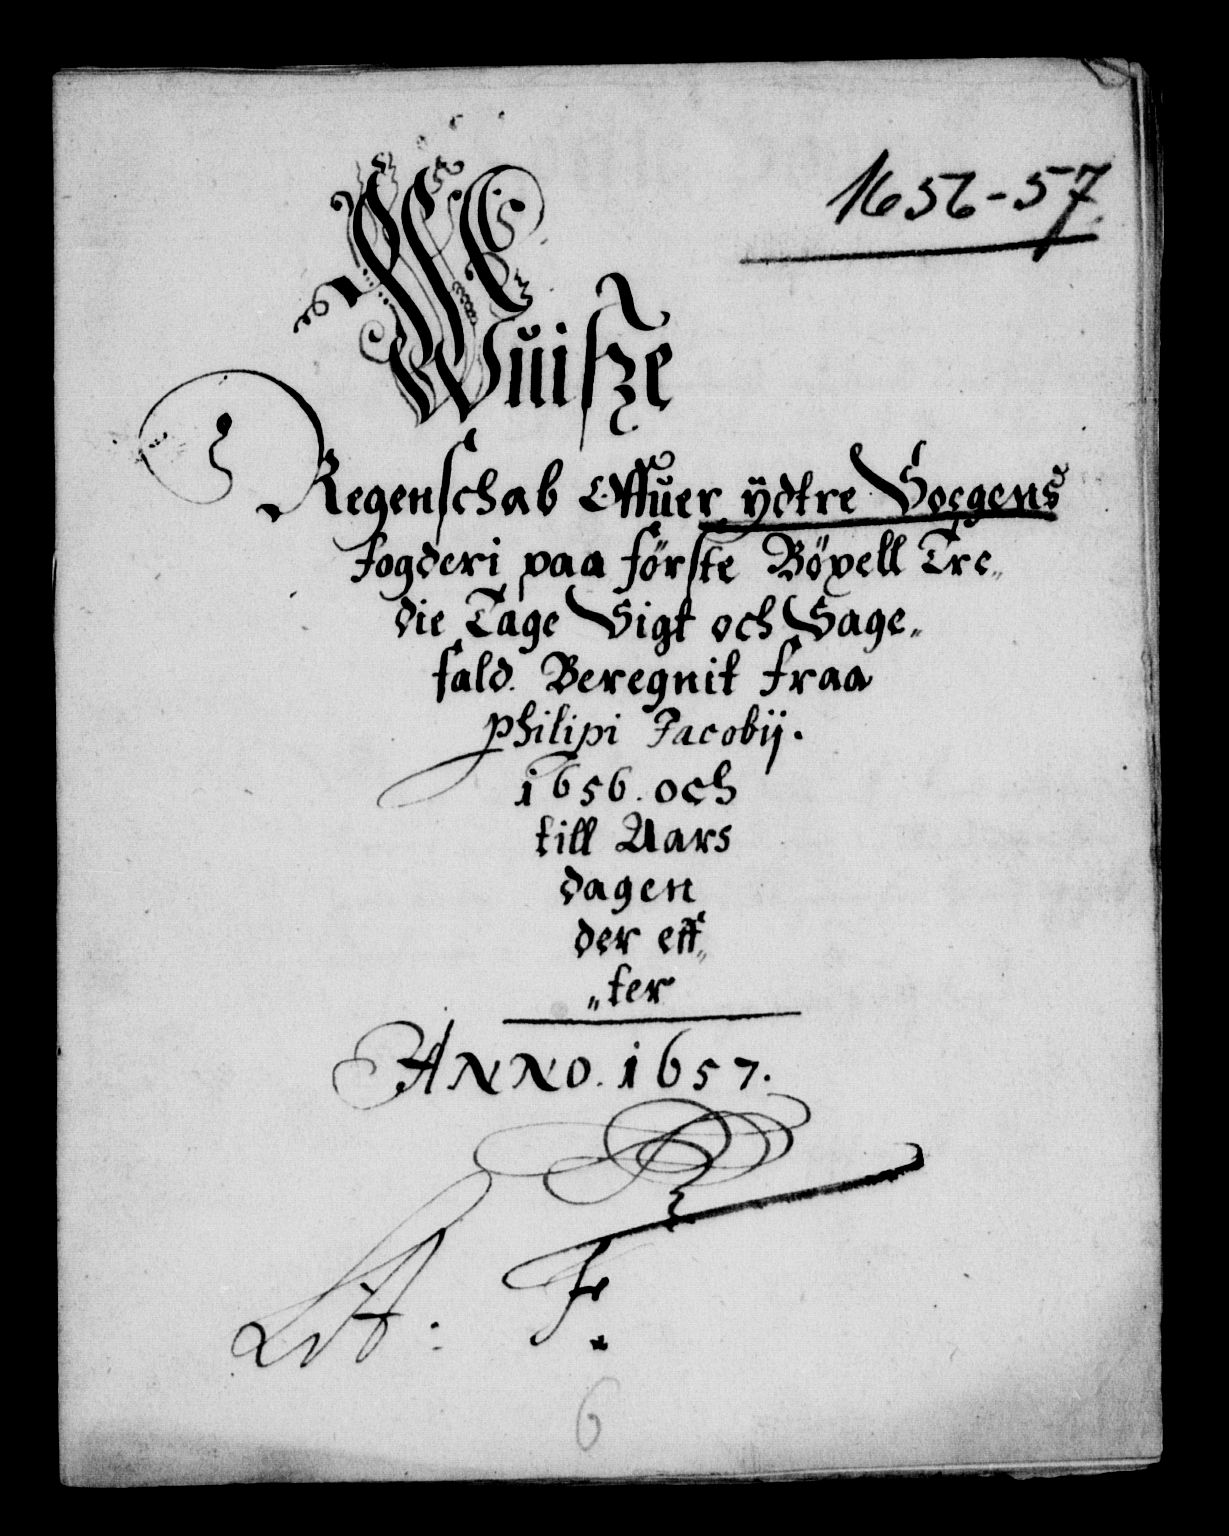 1656-57
Wuisze
Regenschab Offuer ÿdtre Soegens
fogderi paa förste Böxell Tre„
die Tage Sigt och Sage„
fald. Beregnit fraa
Philipi Jacobij.
1656. och
till Aars
dagen
der eff„
„ter
ANNO. 1657.
Lit: F.
6